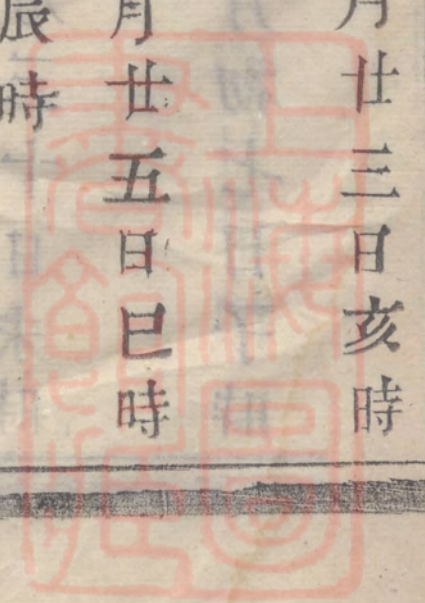 月廿三日亥時
月廿五日巳時
辰時
上海圖書館藏